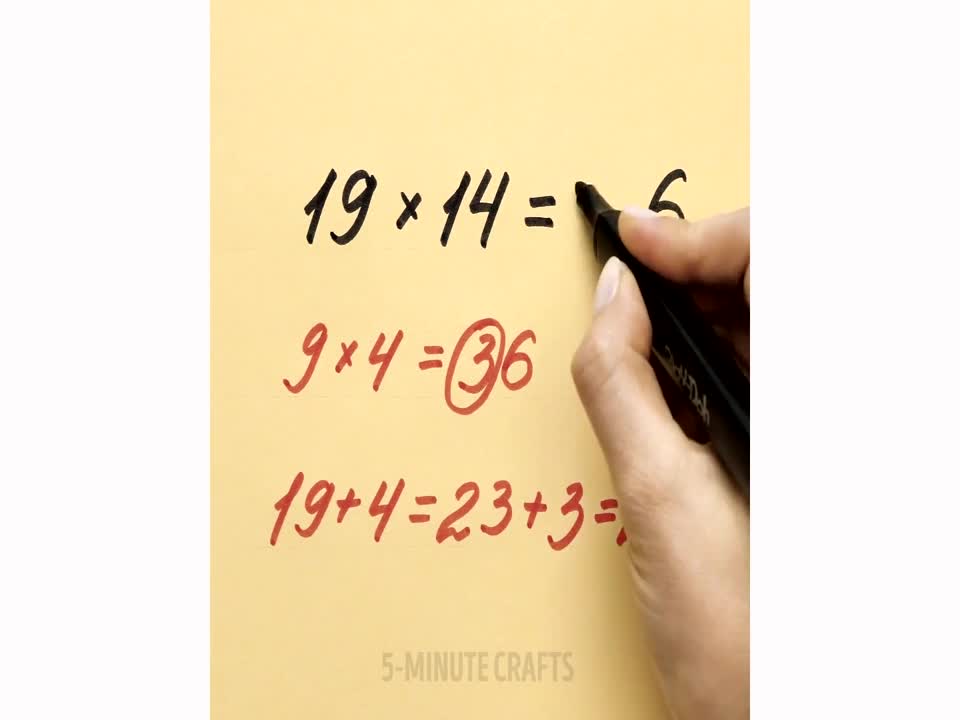 19 × 14 = 6
9 × 4 = 36
19 + 4 = 23 + 3 =
5-MINUTE CRAFTS